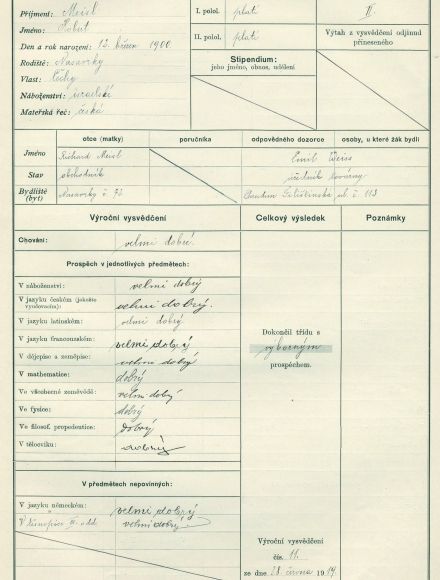 Příjmení: Meisl
Jméno: Robert
Den a rok narození: 12. březen 1900
Rodiště: Nasavrky
Vlast: Čechy
Náboženství: israelské
Mateřská řeč: česká
I. polol. platí
II. polol. platí
Stipendium:
jeho jméno, obnos, udělení
II
Výtah z vysvědčení odjinud
přineseného
otce (matky) poručníka odpovědného dozorce osoby, u které žák bydlí
Jméno Richard Meisl Emil Weiss
Stav obchodník úředník továrny
Bydliště Nasavrky č. 72 Chrudim ul. č. 113
(byt)
Výroční vysvědčení Celkový výsledek Poznámky
Chování: velmi dobré.
Prospěch v jednotlivých předmětech:
V náboženství: velmi dobrý
V jazyku českém (jakožto
vyučovacím): velmi dobrý.
V jazyku latinském: velmi dobrý
V jazyku francouzském: velmi dobrý
V dějepise a zeměpise: velmi dobrý
V mathematice: dobrý
Ve všeobecné zeměvědě: velmi dobrý
Ve fysice: dobrý
Ve filosof. propedeutice: dobrý
V tělocviku: dobrý
Dokončil třídu s
výborným
prospěchem.
V předmětech nepovinných:
V jazyku německém: velmi dobrý
V těsnopise II. odd. velmi dobrý
Výroční vysvědčení
čís. 11.
ze dne 28. června 1914